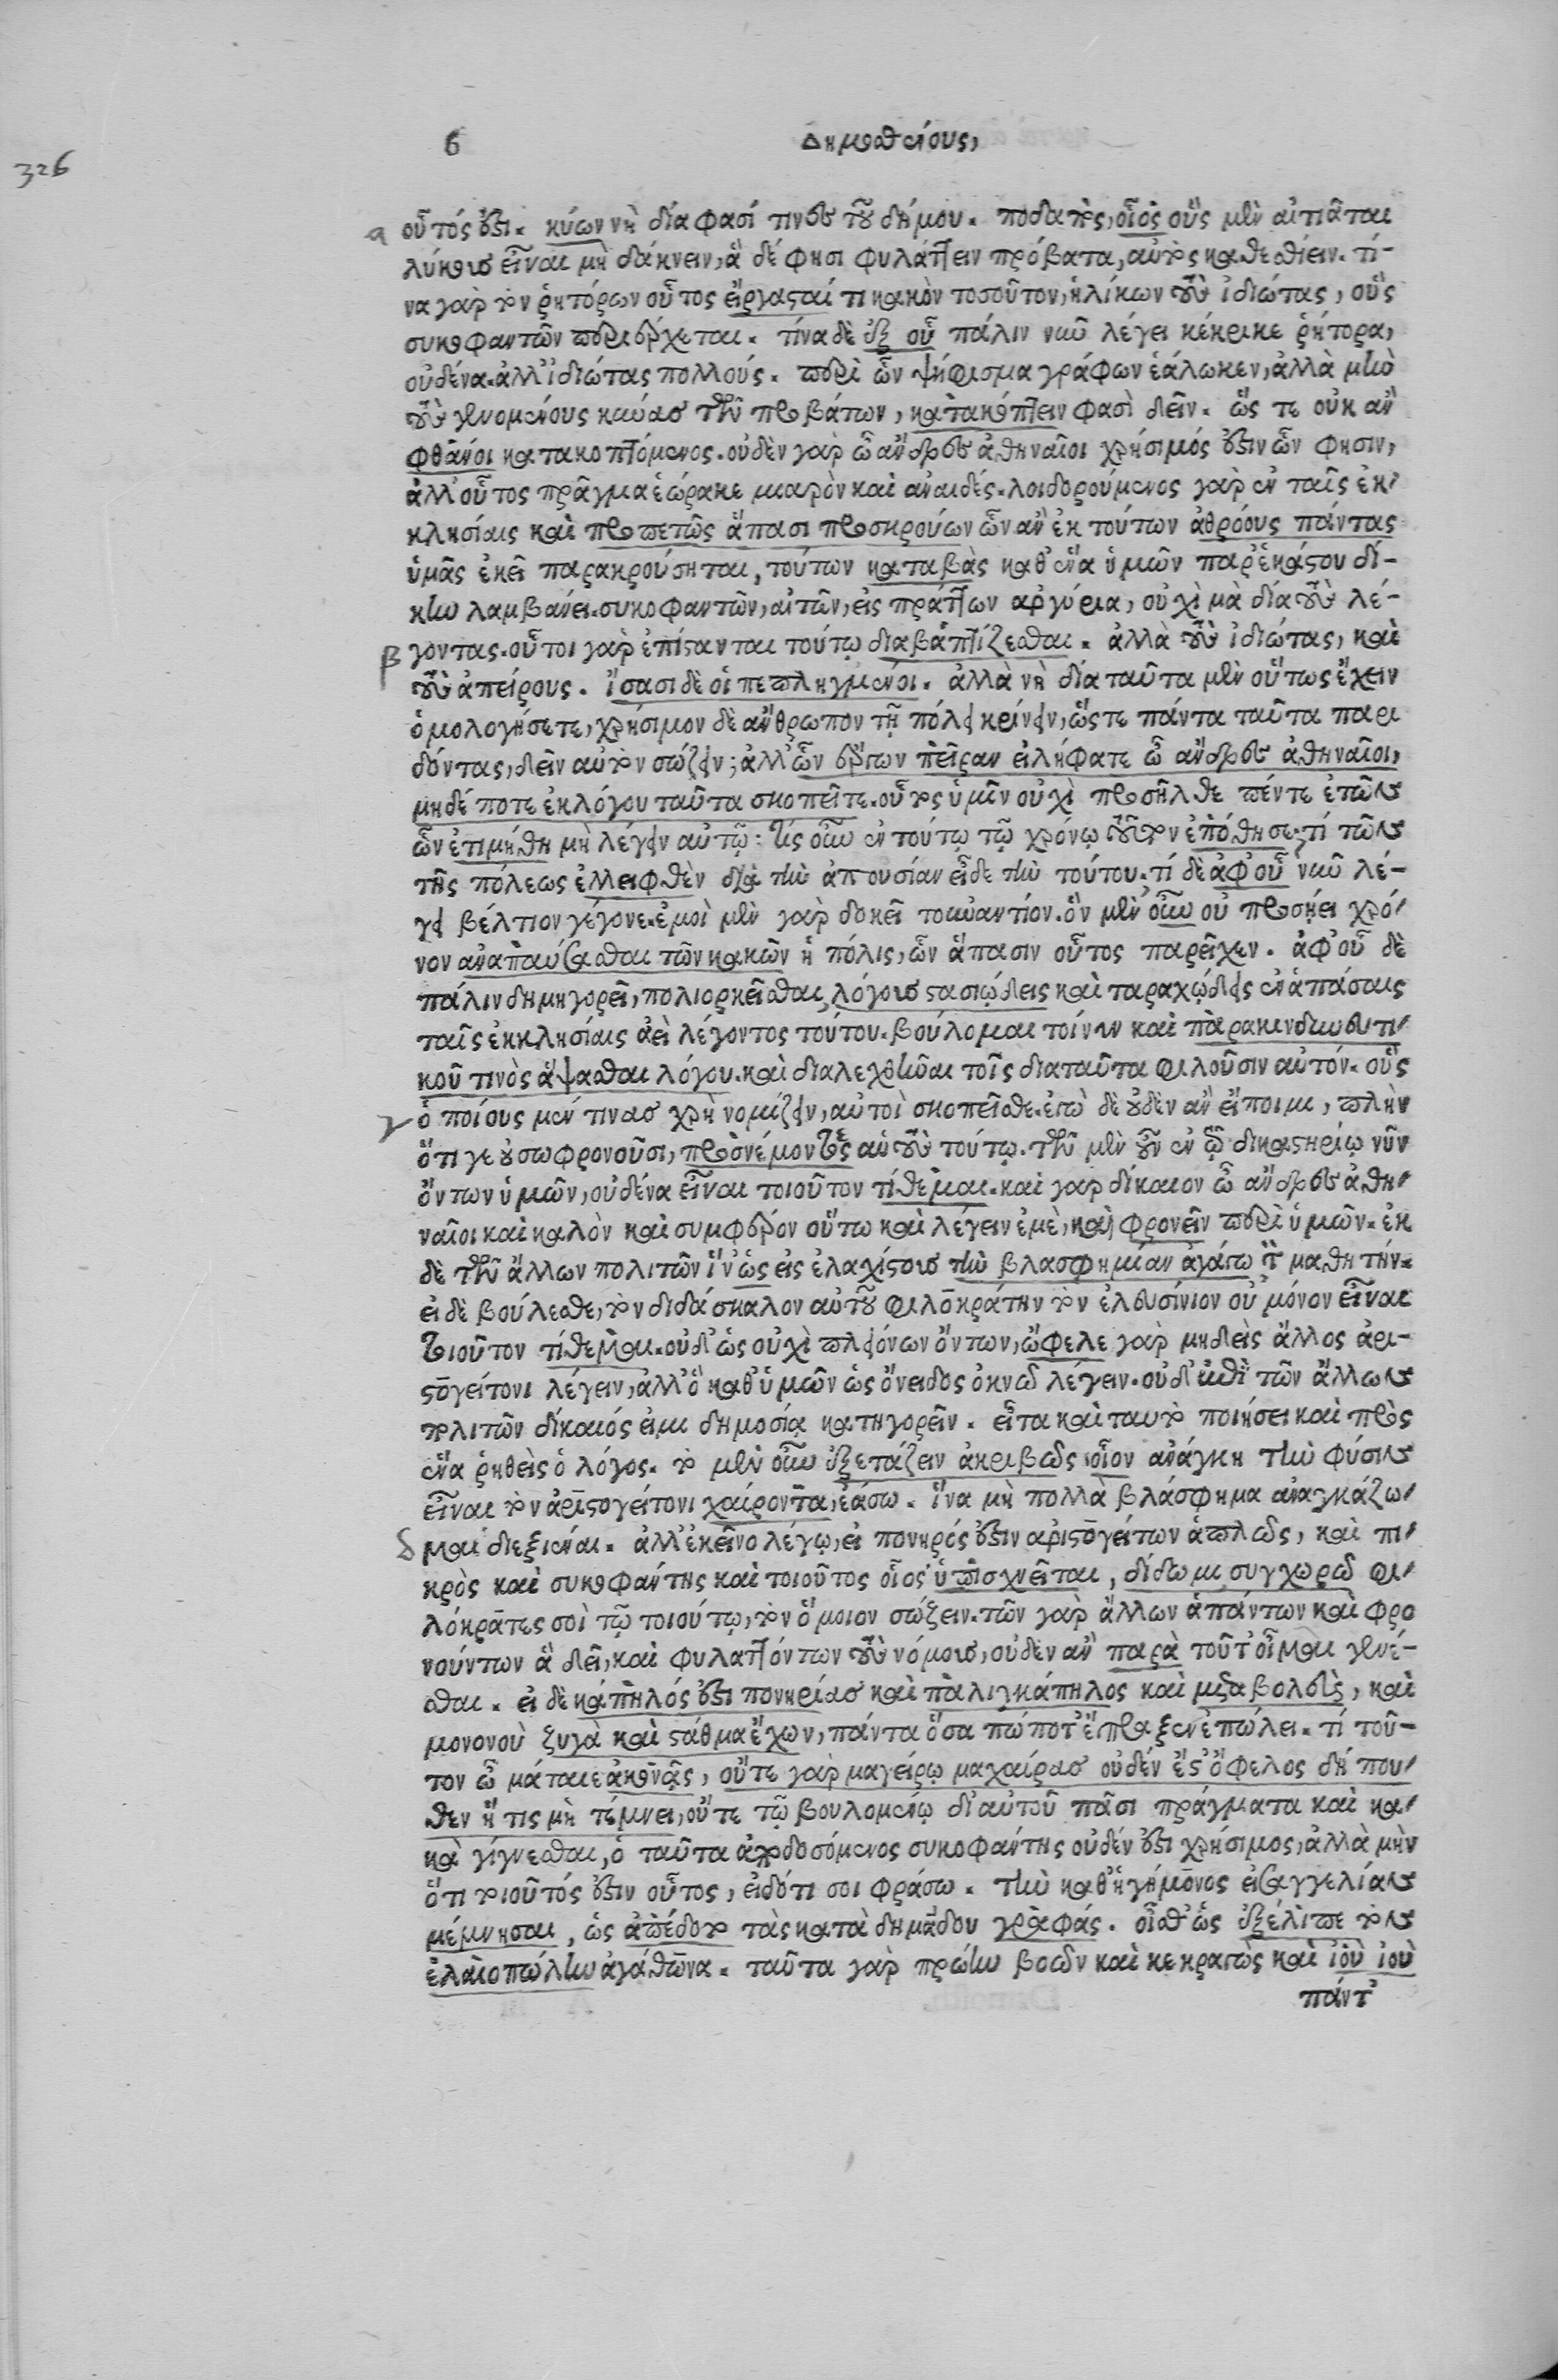 326
6 Δημοσθένους,
α οὗτός ἐστι. κύων νὴ δία φασί τινες τοῦ δήμου. ποδαπὸς, οἷος οὓς μὲν αἰτιᾶται
λύκους εἶναι μὴ δάκνειν, ἃ δέ φησι φυλάττειν πρόβατα, αὐτὸς κατεσθίειν. τί-
να γὰρ τῶν ῥητόρων οὗτος εἴργασταί τι κακὸν τοσοῦτον, ἡλίκων τοὺς ἰδιώτας, οὓς
συκοφαντῶν περιέρχεται. τίνα δὲ ἐξ οὗ πάλιν νῦν λέγει κέκρικε ῥήτορα,
οὐδένα. ἀλλ' ἰδιώτας πολλούς. περὶ ὧν ψήφισμα γράφων ἑάλωκεν, ἀλλὰ μὴν
τοὺς γευομένους κύνας τῶν προβάτων, κατακόπτειν φασὶ δεῖν. ὥς τε οὐκ ἂν
φθάνοι κατακοπτόμενος. οὐδὲν γὰρ ὦ ἄνδρες ἀθηναῖοι χρήσιμός ἐστιν ὧν φησιν,
ἀλλ' οὗτος πρᾶγμα ἑώρακε μιαρὸν καὶ ἀναιδές. λοιδορούμενος γὰρ ἐν ταῖς ἐκ-
κλησίαις καὶ προπετῶς ἅπασι προσκρούων ὧν ἂν ἐκ τούτων ἀθρόους πάντας
ὑμᾶς ἐκεῖ παρακρούσηται, τούτων καταβὰς καθ' ἕνα ὑμῶν παρ' ἑκάστου δί-
κην λαμβάνει. συκοφαντῶν, αἰτῶν, εἰσπράττων ἀργύρια, οὐχὶ μὰ δία τοὺς λέ-
β γοντας. οὗτοι γὰρ ἐπίστανται τούτῳ διαβαπτίζεσθαι. ἀλλὰ τοὺς ἰδιώτας, καὶ
τοὺς ἀπείρους. ἴσασι δὲ οἱ πεπληγμένοι. ἀλλὰ νὴ δία ταῦτα μὲν οὕτως ἔχειν
ὁμολογήσετε, χρήσιμον δὲ ἄνθρωπον τῇ πόλει κρίνειν, ὥς τε πάντα ταῦτα παρι
δόντας, δεῖν αὐτὸν σώζειν; ἀλλ' ὧν ἔργων πεῖραν εἰλήφατε ὦ ἄνδρες ἀθηναῖοι,
μηδέποτε ἐκ λόγου ταῦτα σκοπεῖτε. οὗτος ὑμῖν οὐχὶ προσῆλθε πέντε ἐτῶν
ὧν ἐτιμήθη μὴ λέγειν αὐτῷ: τίς οὖν ἐν τούτῳ τῷ χρόνῳ τοῦτον ἐπόθησε; τί τῶν
τῆς πόλεως ἐλλειφθὲν διὰ τὴν ἀπουσίαν εἶδε τὴν τούτου. τί δὲ ἀφ' οὗ νῦν λέ-
γει βέλτιον γέγονε. ἐμοὶ μὲν γὰρ δοκεῖ τοὐναντίον. ὃν μὲν οὖν οὐ προσῄει χρό-
νον ἀναπαύσασθαι τῶν κακῶν ἡ πόλις, ὧν ἅπασιν οὗτος παρεῖχεν. ἀφ' οὗ δὲ
πάλιν δημηγορεῖ, πολιορκεῖσθαι, λόγους στασιώδεις καὶ ταραχώδεις ἐν ἁπάσαις
ταῖς ἐκκλησίαις ἀεὶ λέγοντος τούτου. βούλομαι τοίνυν καὶ παρακινδυνευτι-
κοῦ τινὸς ἅψασθαι λόγου. καὶ διαλεχθῆναι τοῖς διὰ ταῦτα φιλοῦσιν αὐτόν. οὓς
γ ὁποίους μέν τινας χρὴ νομίζειν, αὐτοὶ σκοπεῖσθε. ἐγὼ δὲ οὐδὲν ἂν εἴποιμι, πλὴν
ὅτι γε οὐ σωφρονοῦσι, προσνέμοντες αὑτοὺς τούτῳ. τῶν μὲν οὖν ἐν τῷ δικαστηρίῳ νῦν
ὄντων ὑμῶν, οὐδένα εἶναι τοιοῦτον τίθεμαι. καὶ γὰρ δίκαιον ὦ ἄνδρες ἀθη-
ναῖοι καὶ καλὸν καὶ συμφέρον οὕτω καὶ λέγειν ἐμὲ, καὶ φρονεῖν περὶ ὑμῶν. ἐκ
δὲ τῶν ἄλλων πολιτῶν ἵν' ὡς εἰς ἐλαχίστους τὴν βλασφημίαν ἀγάγω τὸν μαθητήν.
εἰ δὲ βούλεσθε, τὸν διδάσκαλον αὐτοῦ φιλοκράτην τὸν ἐλευσίνιον οὐ μόνον εἶναι
τοιοῦτον τίθεμαι. οὐδ' ὡς οὐχὶ πλειόνων ὄντων, ὤφελε γὰρ μηδεὶς ἄλλος ἀρι-
στογείτονι λέγειν, ἀλλ' ὃ καθ' ὑμῶν ὡς ὄνειδος ὀκνῶ λέγειν. οὐδὲ κατὰ τῶν ἄλλων
πολιτῶν δίκαιός εἰμι δημοσίᾳ κατηγορεῖν. εἶτα καὶ ταυτὸ ποιήσει καὶ πρὸς
ἕνα ῥηθεὶς ὁ λόγος. τὸ μὲν οὖν ἐξετάζειν ἀκριβῶς οἷον ἀνάγκη τὴν φύσιν
εἶναι τὸν ἀριστογείτονι χαίροντα, ἐάσω. ἵνα μὴ πολλὰ βλάσφημα ἀναγκάζω-
δ μαι διεξιέναι. ἀλλ' ἐκεῖνο λέγω, εἰ πονηρός ἐστιν ἀριστογείτων ἁπλῶς, καὶ πι-
κρὸς καὶ συκοφάντης καὶ τοιοῦτος οἷος ὑπισχνεῖται, δίδωμι συγχωρῶ φι-
λόκρατες σοὶ τῷ τοιούτῳ, τὸν ὅμοιον σώζειν. τῶν γὰρ ἄλλων ἁπάντων καὶ φρο
νούντων ἃ δεῖ, καὶ φυλαττόντων τοὺς νόμους, οὐδὲν ἂν παρὰ τοῦτ' οἶμαι γενέ-
σθαι. εἰ δὲ κάπηλός ἐστι πονηρίας καὶ παλιγκάπηλος καὶ μεταβολεὺς, καὶ
μονονοὺ ζυγὰ καὶ στάθμα ἔχων, πάντα ὅσα πώποτ' ἔπραξεν ἐπώλει. τί τοῦ-
τον ὦ μάταιε ἀκονᾷς, οὔτε γὰρ μαγείρῳ μαχαίρας οὐδέν ἐστ' ὄφελος δή που-
θεν ἥ τις μὴ τέμνει, οὔτε τῷ βουλομένῳ δι' αὑτοῦ πᾶσι πράγματα καὶ κα-
κὰ γίγνεσθαι, ὁ ταῦτα ἀποδοσόμενος συκοφάντης οὐδέν ἐστι χρήσιμος, ἀλλὰ μὴν
ὅτι τοιοῦτός ἐστιν οὗτος, εἰδότι σοι φράσω. τὴν καθ' ἡγήμονος εἰσαγγελίαν
μέμνησαι, ὡς ἀπέδοτο τὰς κατὰ δημάδου γραφάς. οἶσθ' ὡς ἐξέλιπε τὸν
ἐλαιοπώλην ἀγάθωνα. ταῦτα γὰρ πρώην βοῶν καὶ κεκραγὼς καὶ ἰοὺ ἰοὺ
πάντ'